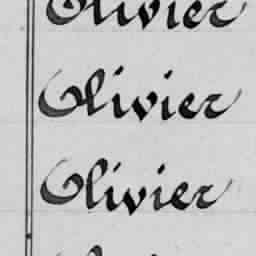 Olivier
Olivier
Olivier